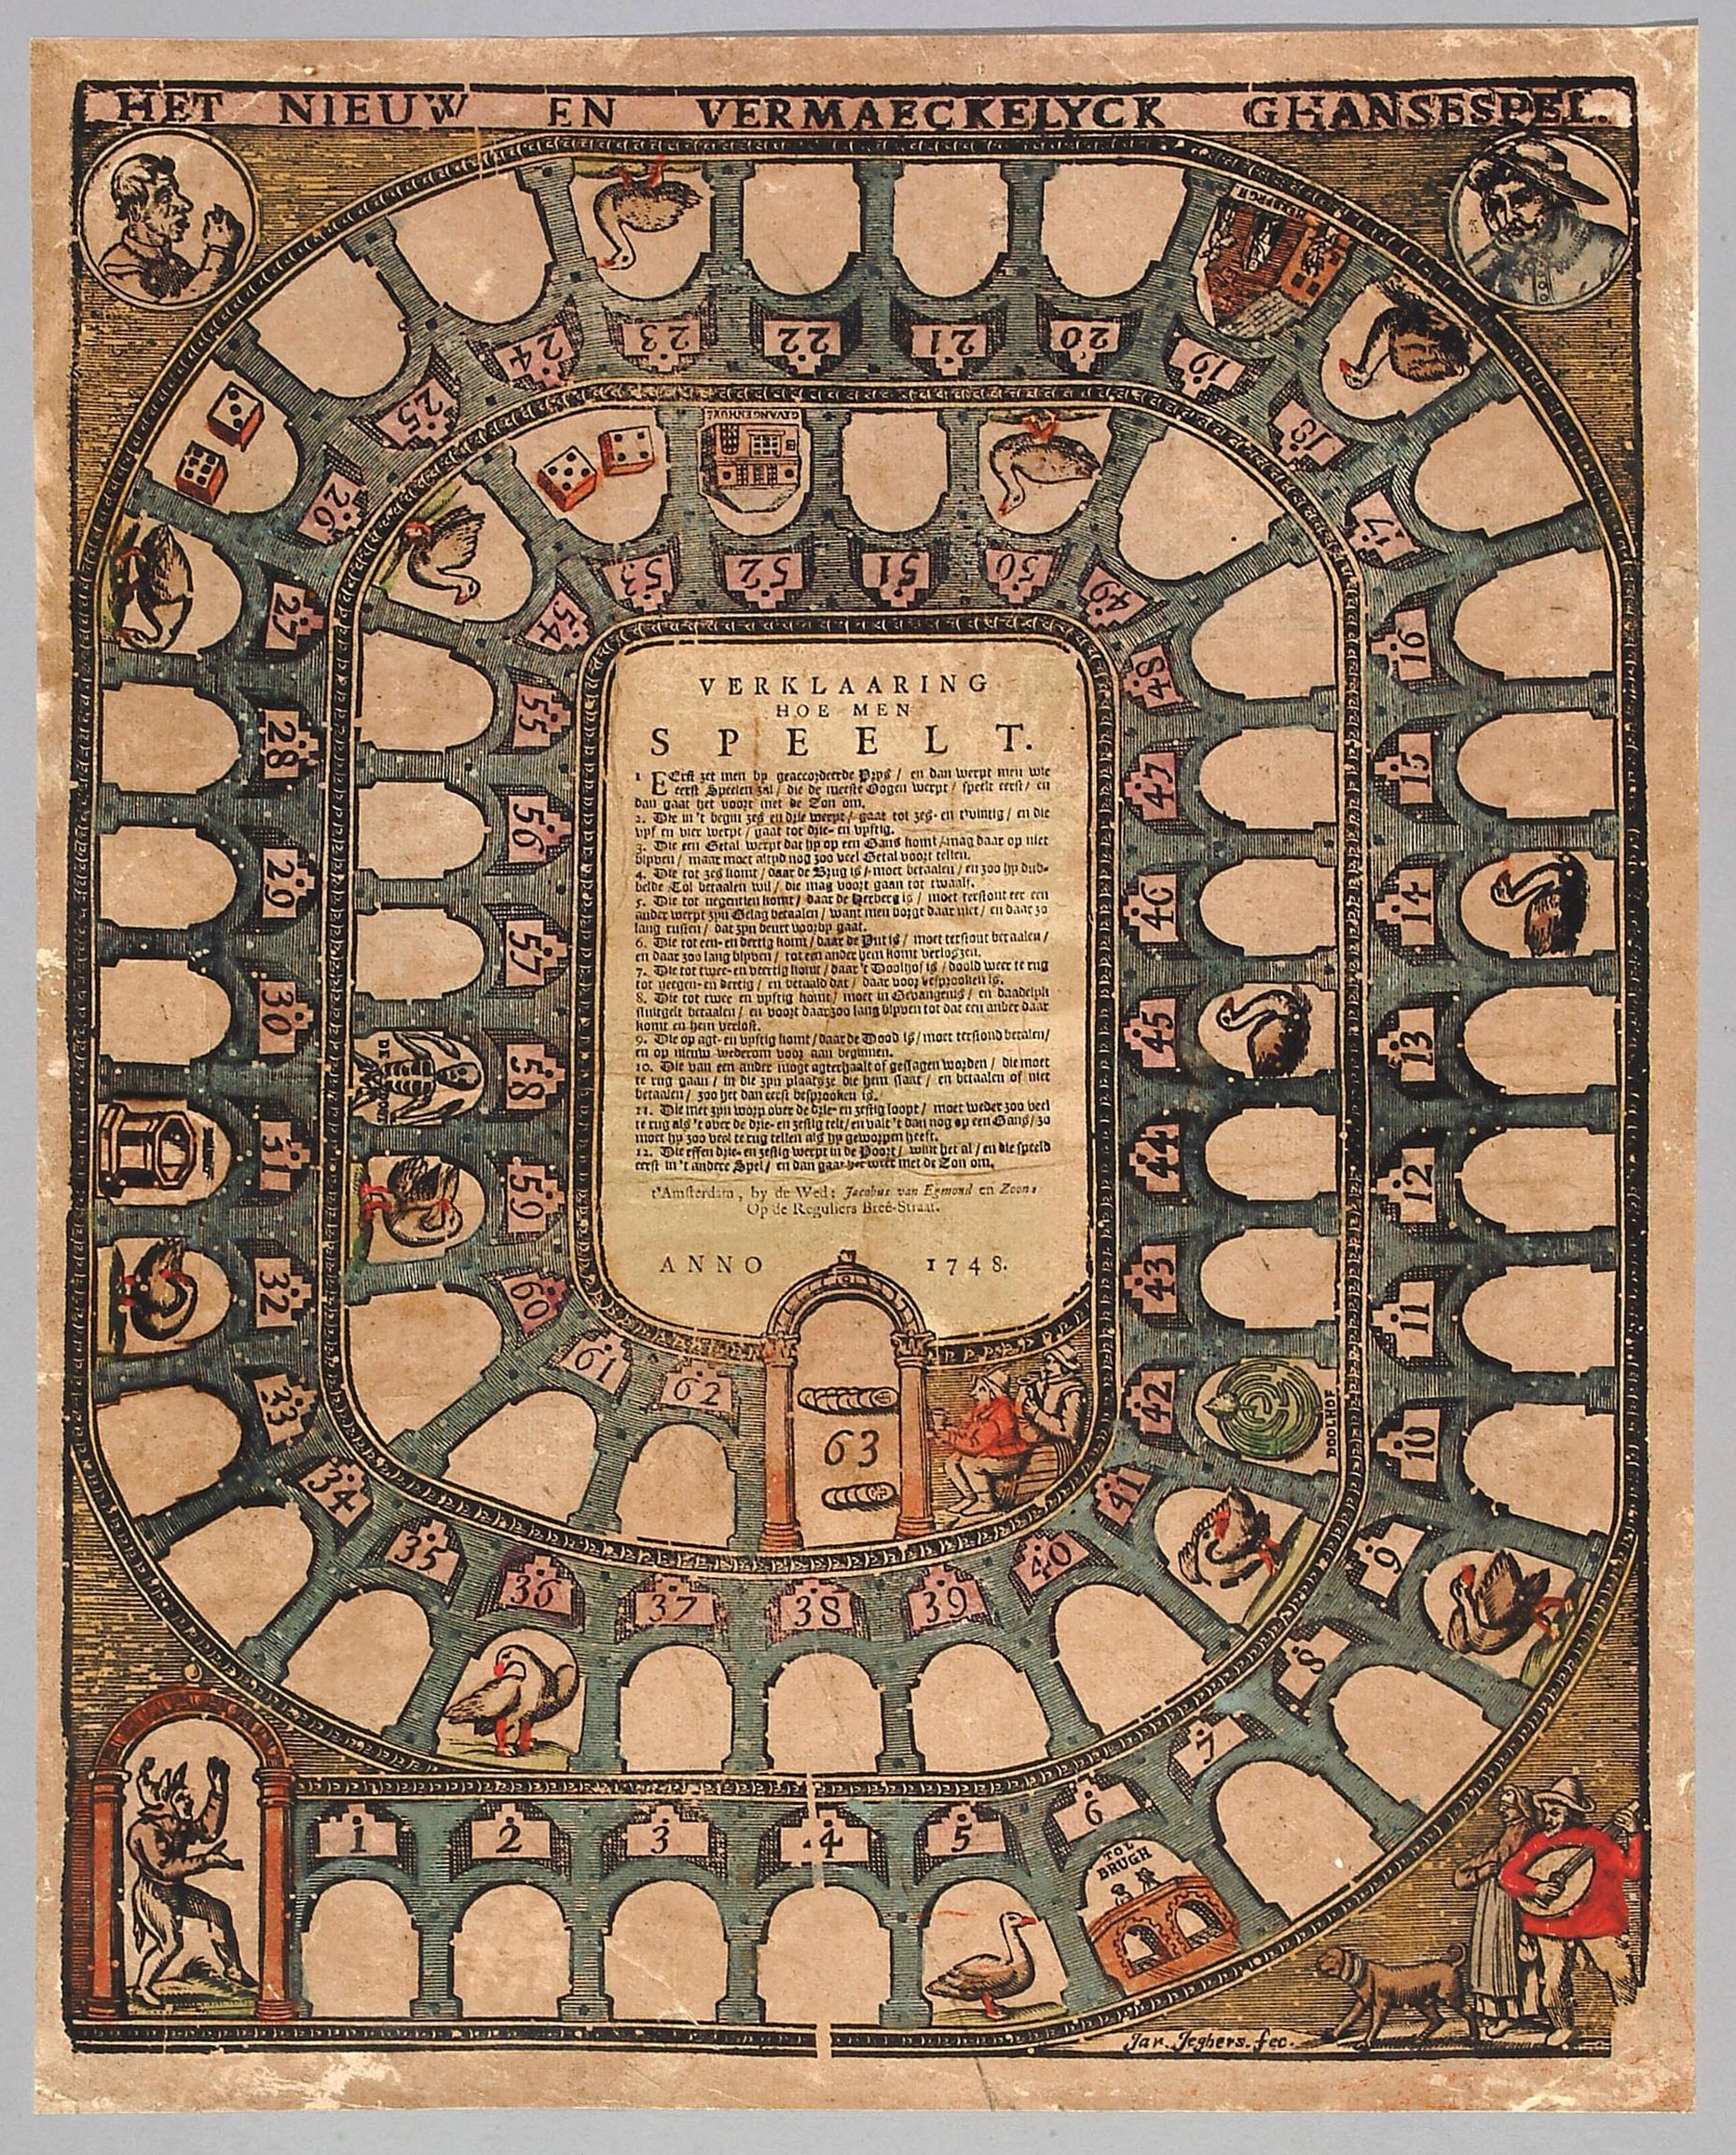 HET NIEUW EN VERMAECKELYCK GHANSESPEL.
HERBERGH
24 23 22 21 20 19
25
26
18
17
27
16
28
15
29
14
30
13
31
12
32
11
33
10
34
9
35 36 37 38 39 40 41
8
7
GEVANGENHUYS
54 53 52 51 50 49
55
48
56
47
57
46
45
DE DOODT
58
44
59
43
60
42
DOOLHOF
61 62
63
VERKLAARING
HOE MEN
SPEELT.
1 EErst zet men by geaccordeerde Prys / en dan werpt men wie
eerst Speelen zal / die de meeste Oogen werpt / speelt eerst / en
dan gaat het voort met de Zon om.
2. Die in 't begin zes en drie werpt / gaat tot zes- en twintig / en die
vyf en vier werpt / gaat tot drie- en vyftig.
3. Die een Getal werpt dat hy op een Gans komt / mag daar op niet
blyven / maar moet altyd nog zoo veel Getal voort tellen.
4. Die tot zes komt / daar de Brug is / moet betaalen / en zoo hy dub-
belde Tol betaalen wil / die mag voort gaan tot twaalf.
5. Die tot negentien komt / daar de Herberg is / moet terstont eer een
ander werpt zyn Gelag betaalen / want men borgt daar niet / en daar zo
lang rusten / dat zyn beurt voorby gaat.
6. Die tot een- en dertig komt / daar de Put is / moet terstont betaalen /
en daar zoo lang blyven / tot een ander hem komt verlossen.
7. Die tot twee- en veertig komt / daar 't Doolhof is / doold weer te rug
tot negen- en dertig / en betaald dat / daar voor besprooken is.
8. Die tot twee en vyftig komt / moet in Gevangenis / en daadelyk
sluitgelt betaalen / en voort daar zoo lang blyven tot dat een ander daar
komt en hem verlost.
9. Die op agt- en vyftig komt / daar de Dood is / moet terstond betalen /
en op nieuw wederom voor aan beginnen.
10. Die van een ander mogt agterhaalt of geslagen worden / die moet
te rug gaan / in die zyn plaatsze die hem slaat / en betaalen of niet
betaalen / zoo het dan eerst besprooken is.
11. Die met zyn worp over de drie- en zestig loopt / moet weder zoo veel
te rug als 't over de drie- en zestig telt / en valt 't dan nog op een Gans / zo
moet hy zoo veel te rug tellen als hy geworpen heeft.
12. Die effen drie- en zestig werpt in de Poort / wint het al / en die speeld
eerst in 't andere Spel / en dan gaat het weer met de Zon om.
t'Amsterdam, by de Wed: Jacobus van Egmond en Zoon:
Op de Reguliers Breê-Straat.
ANNO 1748.
1 2 3 4 5 6
TOL
BRUGH
Jar. Jeghers. fec.